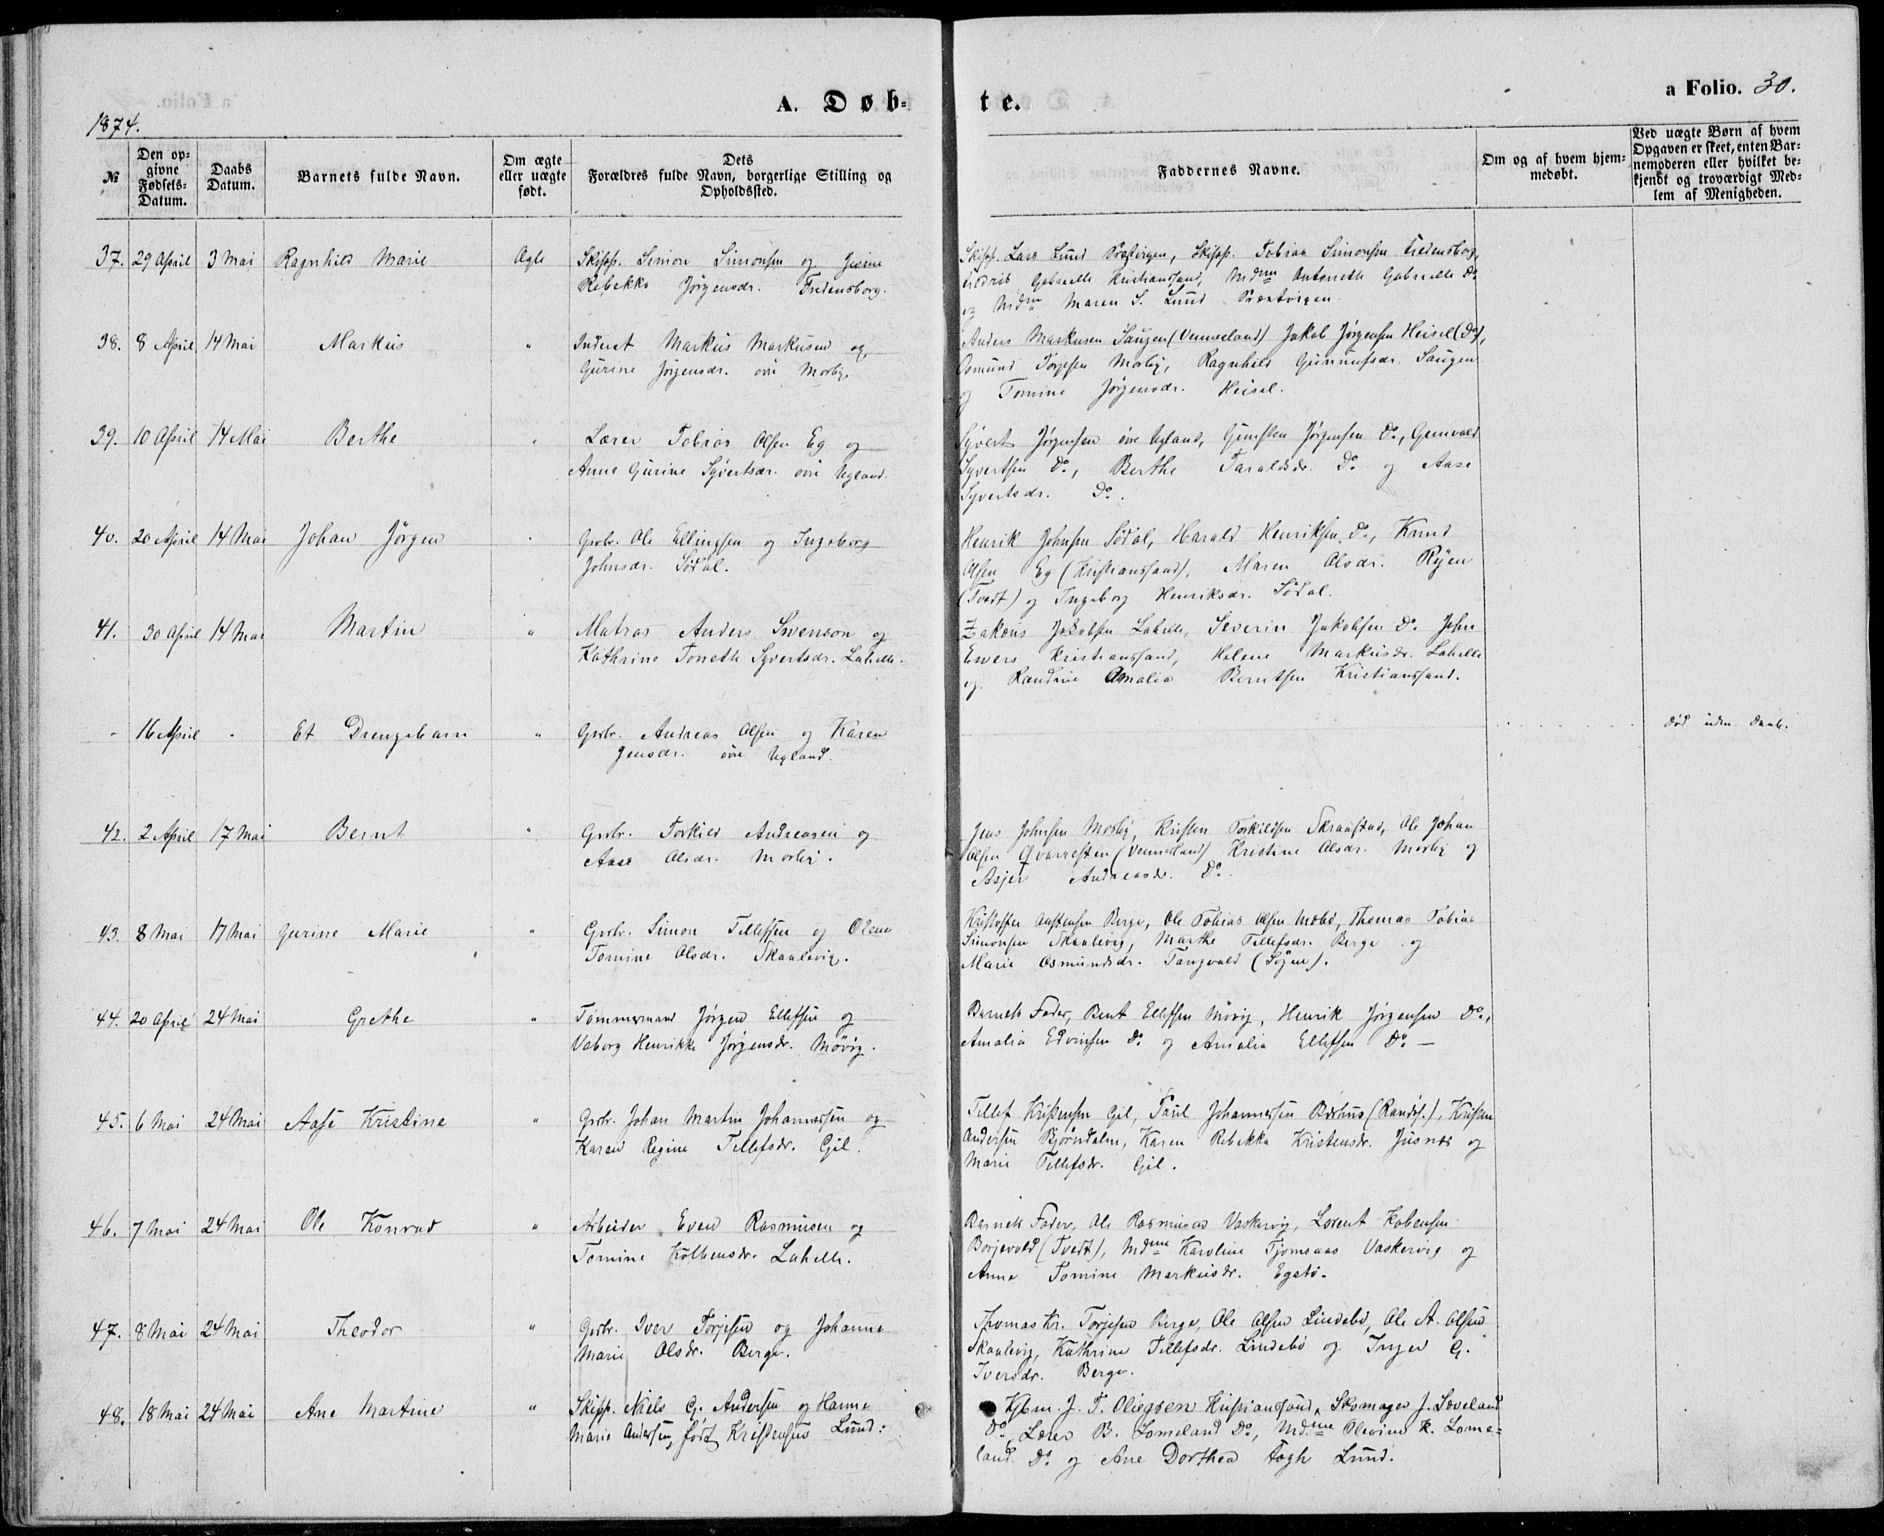 A. Døb-
te.
a Folio. 30.
1874.
№
Den op-
givne
Fødsels-
Datum.
Daabs
Datum.
Barnets fulde Navn.
Om ægte
eller uægte
født.
Dets
Forældres fulde Navn, borgerlige Stilling og
Opholdssted.
Faddernes Navne.
Om og af hvem hjem-
medøbt.
Ved uægte Børn af hvem
Opgaven er skeet, enten Bar-
nemoderen eller hvilket be-
kjendt og troværdigt Med-
lem af Menigheden.
37. 29 April 3 Mai Ragnhild Marie Ægte Skipp. Simon Simonsen og Jesine
Rebekka Jørgensdr. Fredensborg.
Skipp. Lars Lund Præstvigen, Skipp. Tobias Simonsen Fredensborg,
Gabrielle Kristiansand, Mdme Antonette Gabrielle Do
og Mdme Maren S. Lund Præstvigen.
38. 8 April 14 Mai Markus " Inderst Markus Markusen og
Gurine Jørgensdr. øvre Mosby.
Anders Markusen Saugen (Vennesland) Jakob Jørgensen Heisel (Do),
Osmund Torjesen Mosby, Ragnhild Gunnufsdr. Saugen
og Tomine Jørgensdr. Heisel.
39. 10 April 14 Mai Berthe " Lærer Tobias Olsen Eg og
Anne Gurine Syvertsdr. øvre Ugland.
Syvert Jørgensen øvre Ugland, Gunsten Jørgensen Do, Gunvald
Syvertsen Do, Berthe Taraldsdr. Do og Aase
Syvertsdr. Do.
40. 20 April 14 Mai Johan Jørgen " Grbr. Ole Ellingsen og Ingeborg
Johnsdr. Sødal.
Henrik Johnsen Sødal, Harald Henriksen Do, Knud
Olsen Eg (Kristianssand), Maren Olsdr. Ryen
(Tvedt) og Ingeborg Henriksdr. Sødal.
41. 30 April 14 Mai Martin " Matros Anders Swenson og
Kathrine Tonette Syvertsdr. Lahelle.
Zakous Jakobsen Lahelle, Severin Jakobsen Do John
Ewers Kristianssand, Helene Markusdr. Lahelle
og Randine Amalia Berntsen Kristianssand.
- 16 April - Et Drengebarn " Grbr. Andreas Olsen og Karen
Jensdr. øvre Ugland.
død uden Daab.
42. 2 April 17 Mai Bernt " Grbr. Torkild Andreasen og
Aase Olsdr. Mosby.
Jens Johnsen Mosby, Kristen Torkildsen Skraastad, Ole Johan
Olsen Qvarresten (Vennesland) Kristine Olsdr. Mosby og
Asjer Andreasdr. Do.
43. 8 Mai 17 Mai Gurine Marie " Grbr. Simon Tellefsen og Olene
Tomine Olsdr. Skaalevig.
Kristoffer Austensen Berge, Ole Tobias Olsen Mebø, Thomas Tobias
Simonsen Skaalevig, Marthe Tellefsdr. Berge og
Marie Osmundsdr. Tangvald (Søgne).
44. 20 April 24 Mai Grethe " Tømmermand Jørgen Ellefsen og
Vaborg Henrikke Jørgensdr. Møvig.
Barnets Fader, Bent Ellefsen Møvig, Henrik Jørgensen Do,
Amalia Edvinsen Do og Amalia Ellefsen Do —
45. 6 Mai 24 Mai Aase Kristine " Grbr. Johan Martin Johannessen og
Karen Regine Tellefsdr. Gil.
Tellef Kristensen Gil, Paul Johannessen Bærhus (Randøs.), Kristen
Andersen Bjørndalen, Karen Rebekka Kristensdr. Jusnæs og
Marie Tellefsdr. Gil.
46. 7 Mai 24 Mai Ole Konrad " Arbeider Even Rasmusen og
Tomine Kolbensdr. Lahelle.
Barnets Fader, Ole Rasmusen Vaskervig, Lorent Kobensen
Borjevold (Tvedt), Mdme Karoline Tjomsaas Vaskervig og
Anne Tomine Markusdr. Egebø.
47. 8 Mai 24 Mai Theodor " Grbr. Iver Torjesen og Johanne
Marie Olsdr. Berge.
Thomas Kr. Torjesen Berge, Ole Olsen Lindebø, Ole A. Olsen
Skaalevig, Kathrine Tellefsdr. Lindebø og Inger G.
Iversdr. Berge.
48. 18 Mai 24 Mai Ane Martine " Skipp. Niels G. Andersen og Hanne
Marie Andersen, født Kristensen Lund:
Kjbm. J. T. Oliegsen Kristianssand, Skomager J. Løveland
Do, Lærer B. Lomeland Do, Mdme Olevine K. Lome-
land Do og Ane Dorthea Fogh Lund.